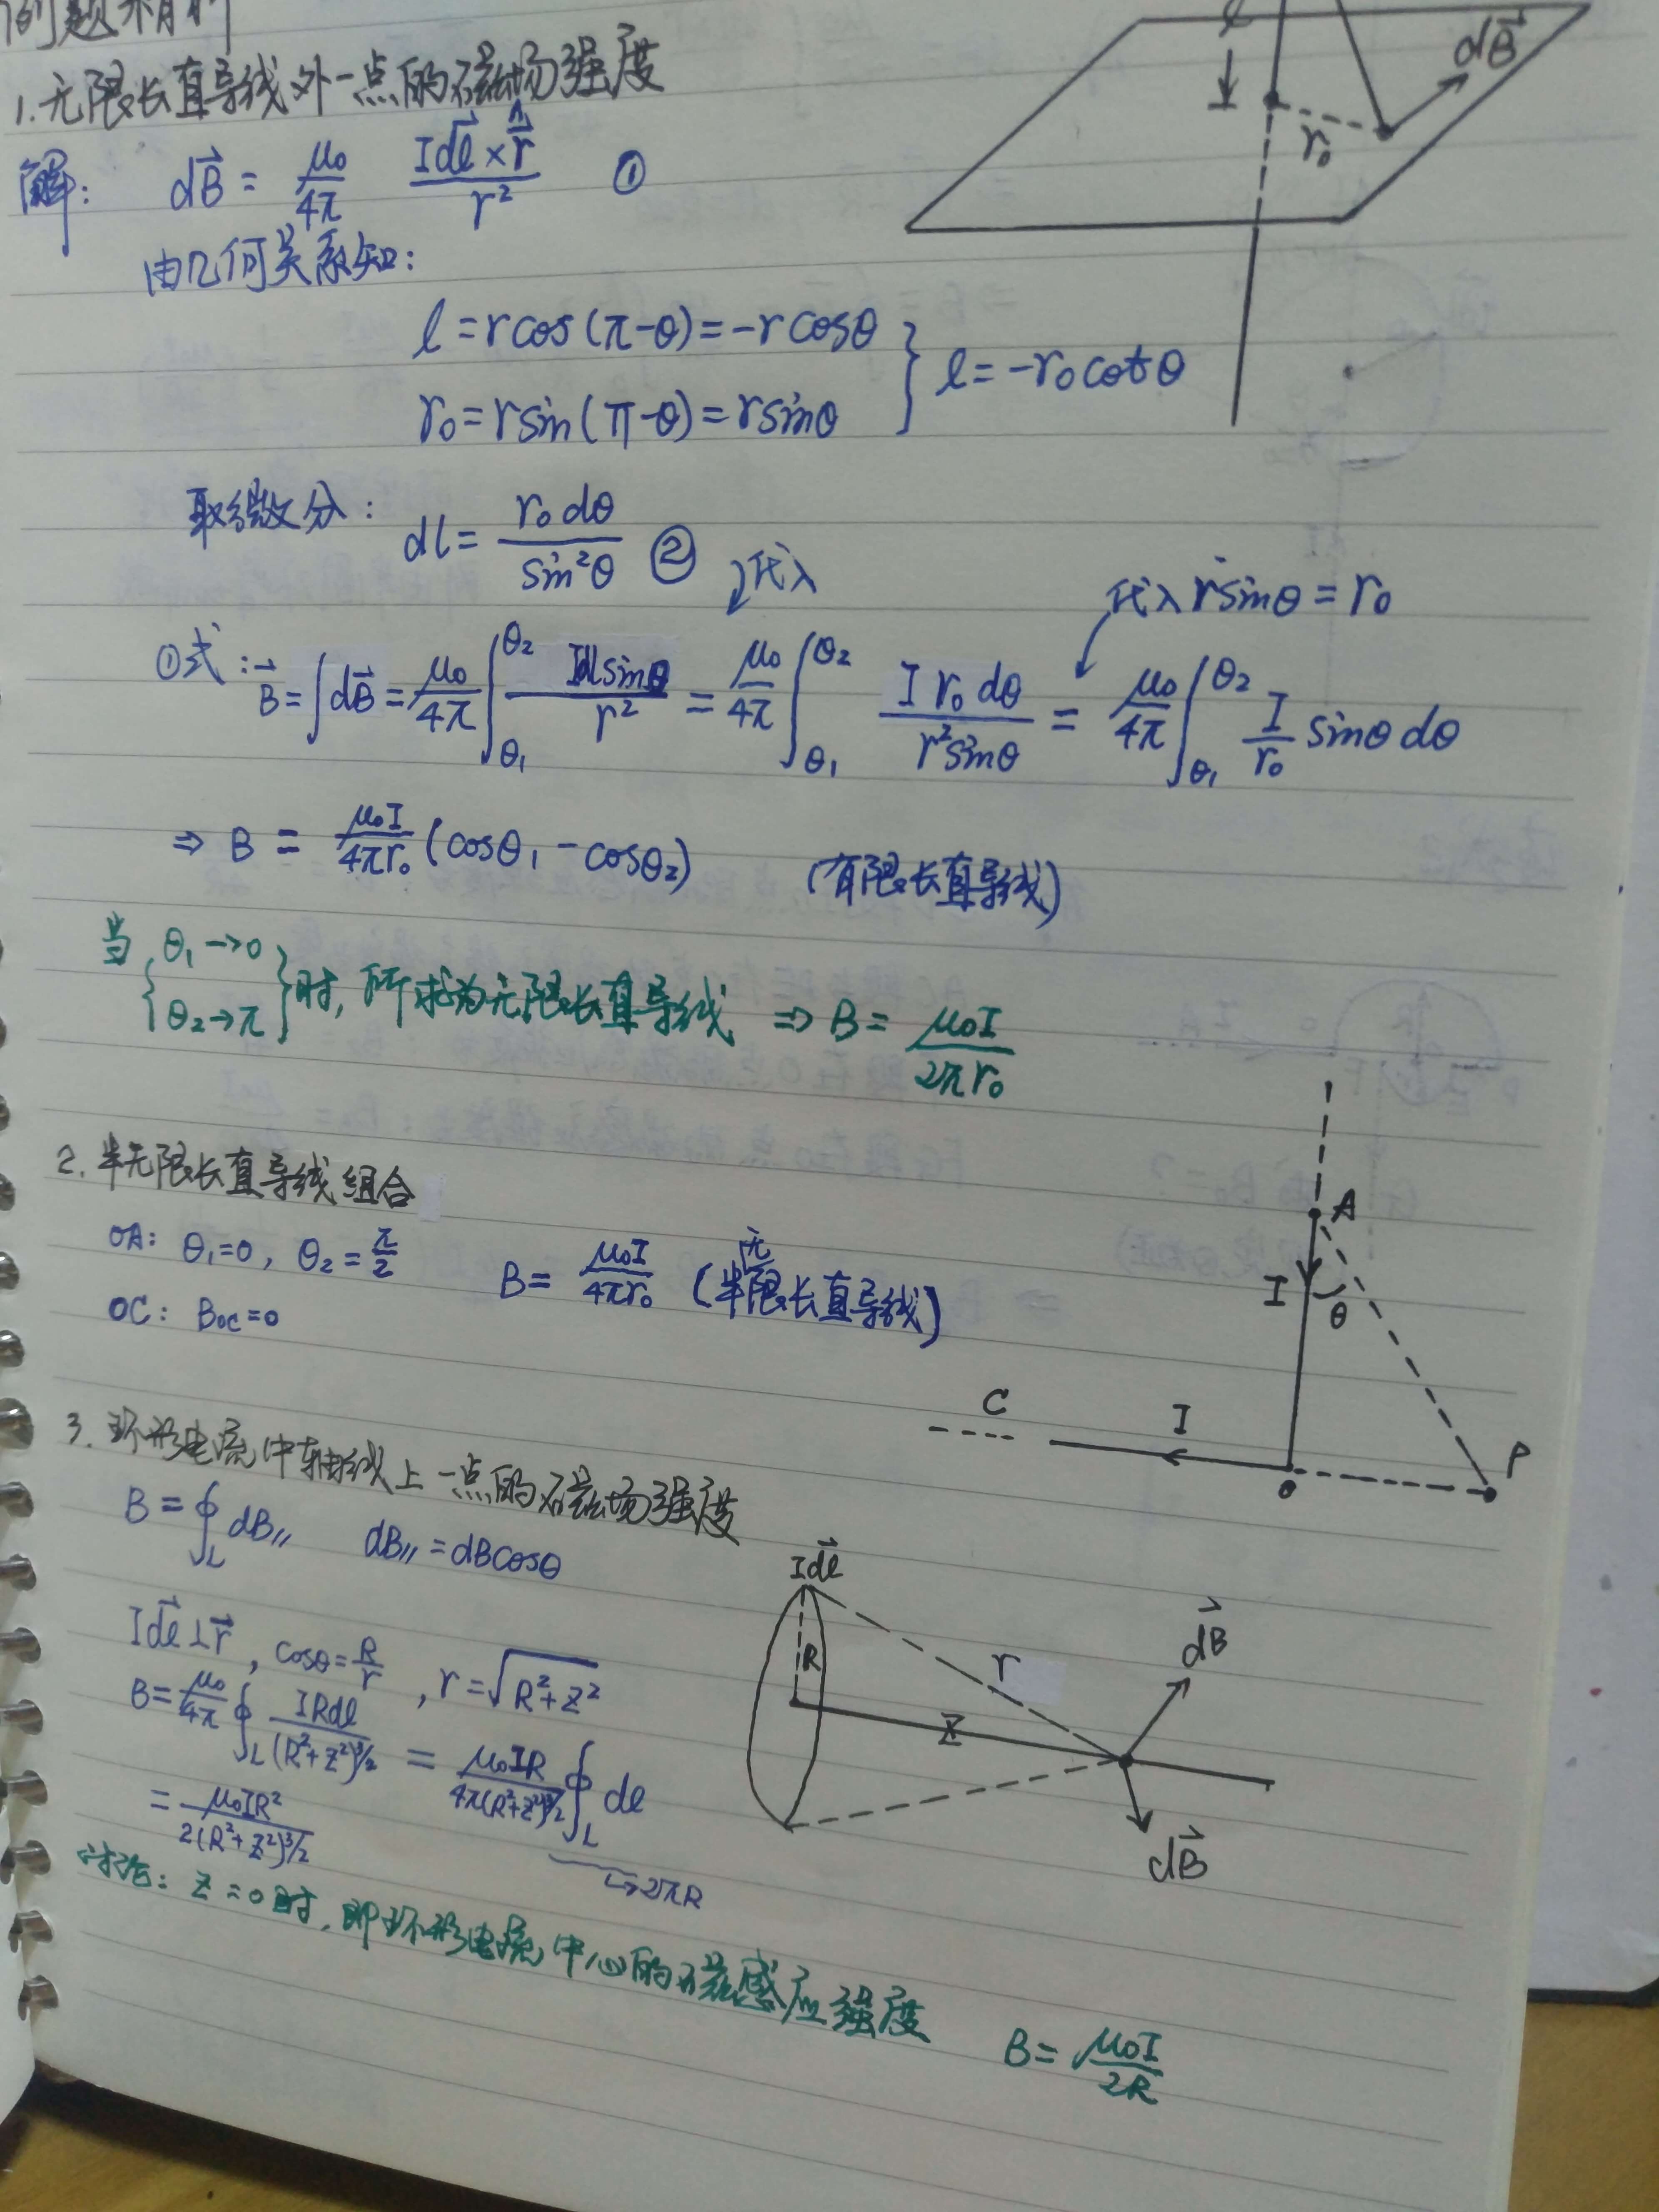 例题精析
1.无限长直导线外一点的磁场强度
解: dB⃗ = μ₀/4π Idl⃗×r̂/r² ①
由几何关系知:
l=rcos(π-θ)=-rcosθ
r₀=rsin(π-θ)=rsinθ } l=-r₀cotθ
取微分: dl= r₀dθ/sin²θ ②
↓代入
代入 rsinθ=r₀
①式: B⃗=∫dB⃗=μ₀/4π ∫θ₁^θ₂ Idlsinθ/r² = μ₀/4π ∫θ₁^θ₂ I r₀ dθ/r²sinθ = μ₀/4π ∫θ₁^θ₂ I/r₀ sinθ dθ
⇒ B = μ₀I/4πr₀ (cosθ₁-cosθ₂) (有限长直导线)
当{θ₁→0 θ₂→π}时, 所求为无限长直导线 ⇒ B= μ₀I/2πr₀
2.半无限长直导线组合
OA: θ₁=0, θ₂=π/2 B= μ₀I/4πr₀ (半无限长直导线)
OC: Boc=0
3.环形电流中轴线上一点的磁场强度
B=∮L dB∥ dB∥=dBcosθ
Idl⃗⊥r⃗, cosθ=R/r, r=√R²+Z²
B=μ₀/4π ∮L IRdl/(R²+Z²)^3/2 = μ₀IR/4π(R²+Z²)^3/2 ∮L dl
→2πR
= μ₀IR²/2(R²+Z²)^3/2
讨论: Z=0时, 即环形电流中心的磁感应强度 B= μ₀I/2R
l
dB⃗
r₀
A
I
θ
C
I
O
P
Idl⃗
R
r
Z
dB⃗
dB⃗